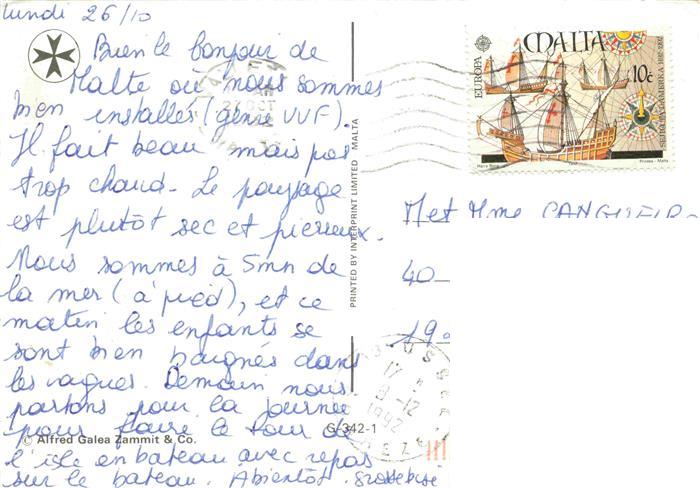 lundi 26/10
Bien le bonjour de
Malte où nous sommes
bien installés (genre VVF).
Il fait beau mais pas
trop chaud - Le paysage
est plutôt sec et pierreux.
Nous sommes à 5mn de
la mer (à pied), et ce
matin les enfants se
sont bien baignés dans
les vagues. Demain nous
partons pour la journée
pour faire le tour de
l'isle en bateau avec repas
sur le bateau. A bientôt.
© Alfred Galea Zammit & Co.
G-342-1
PRINTED BY INTERPRINT LIMITED MALTA
EUROPA
MALTA
10c
Harry Borg
Printex - Malta
M et Mme
40
19
27 OCT
17 H
9-12
1992